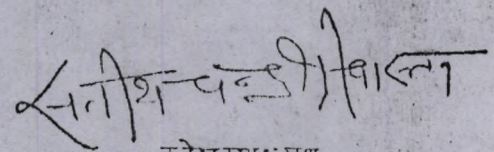 सतीश चन्द्र श्रीवास्तव